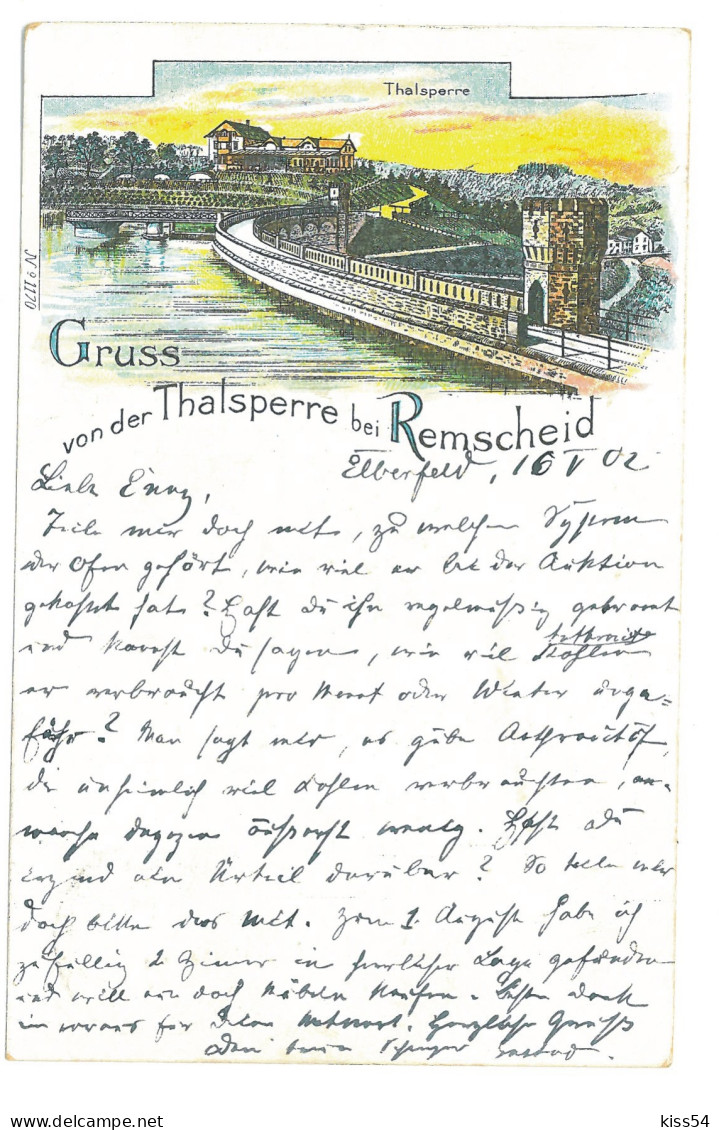 Thalsperre
Nº 1170
Gruss
von der Thalsperre bei Remscheid
Elberfeld, 16 V 02
Liebe Enny,
Teile mir doch mit, zu welchem System
der Ofen gehört, wie viel er bei der Auktion
gekostet hat? Hast du ihn regelmäßig gebrannt
und kannst du sagen, wie viel Kohlen
er verbraucht pro Monat oder Winter unge=
fähr? Man sagt mir, es gäbe
die unheimlich viel Kohlen verbrauchten, an-
dagegen wenig. Hast du
irgend ein Urteil darüber? So teile mir
doch bitte das mit. Zum 1. August habe ich
zufällig 2 Zimmer in herrlicher Lage gefunden
und will doch Möbeln kaufen. Besten Dank
im voraus für deine Antwort. Herzliche Grüße
dein
kiss54